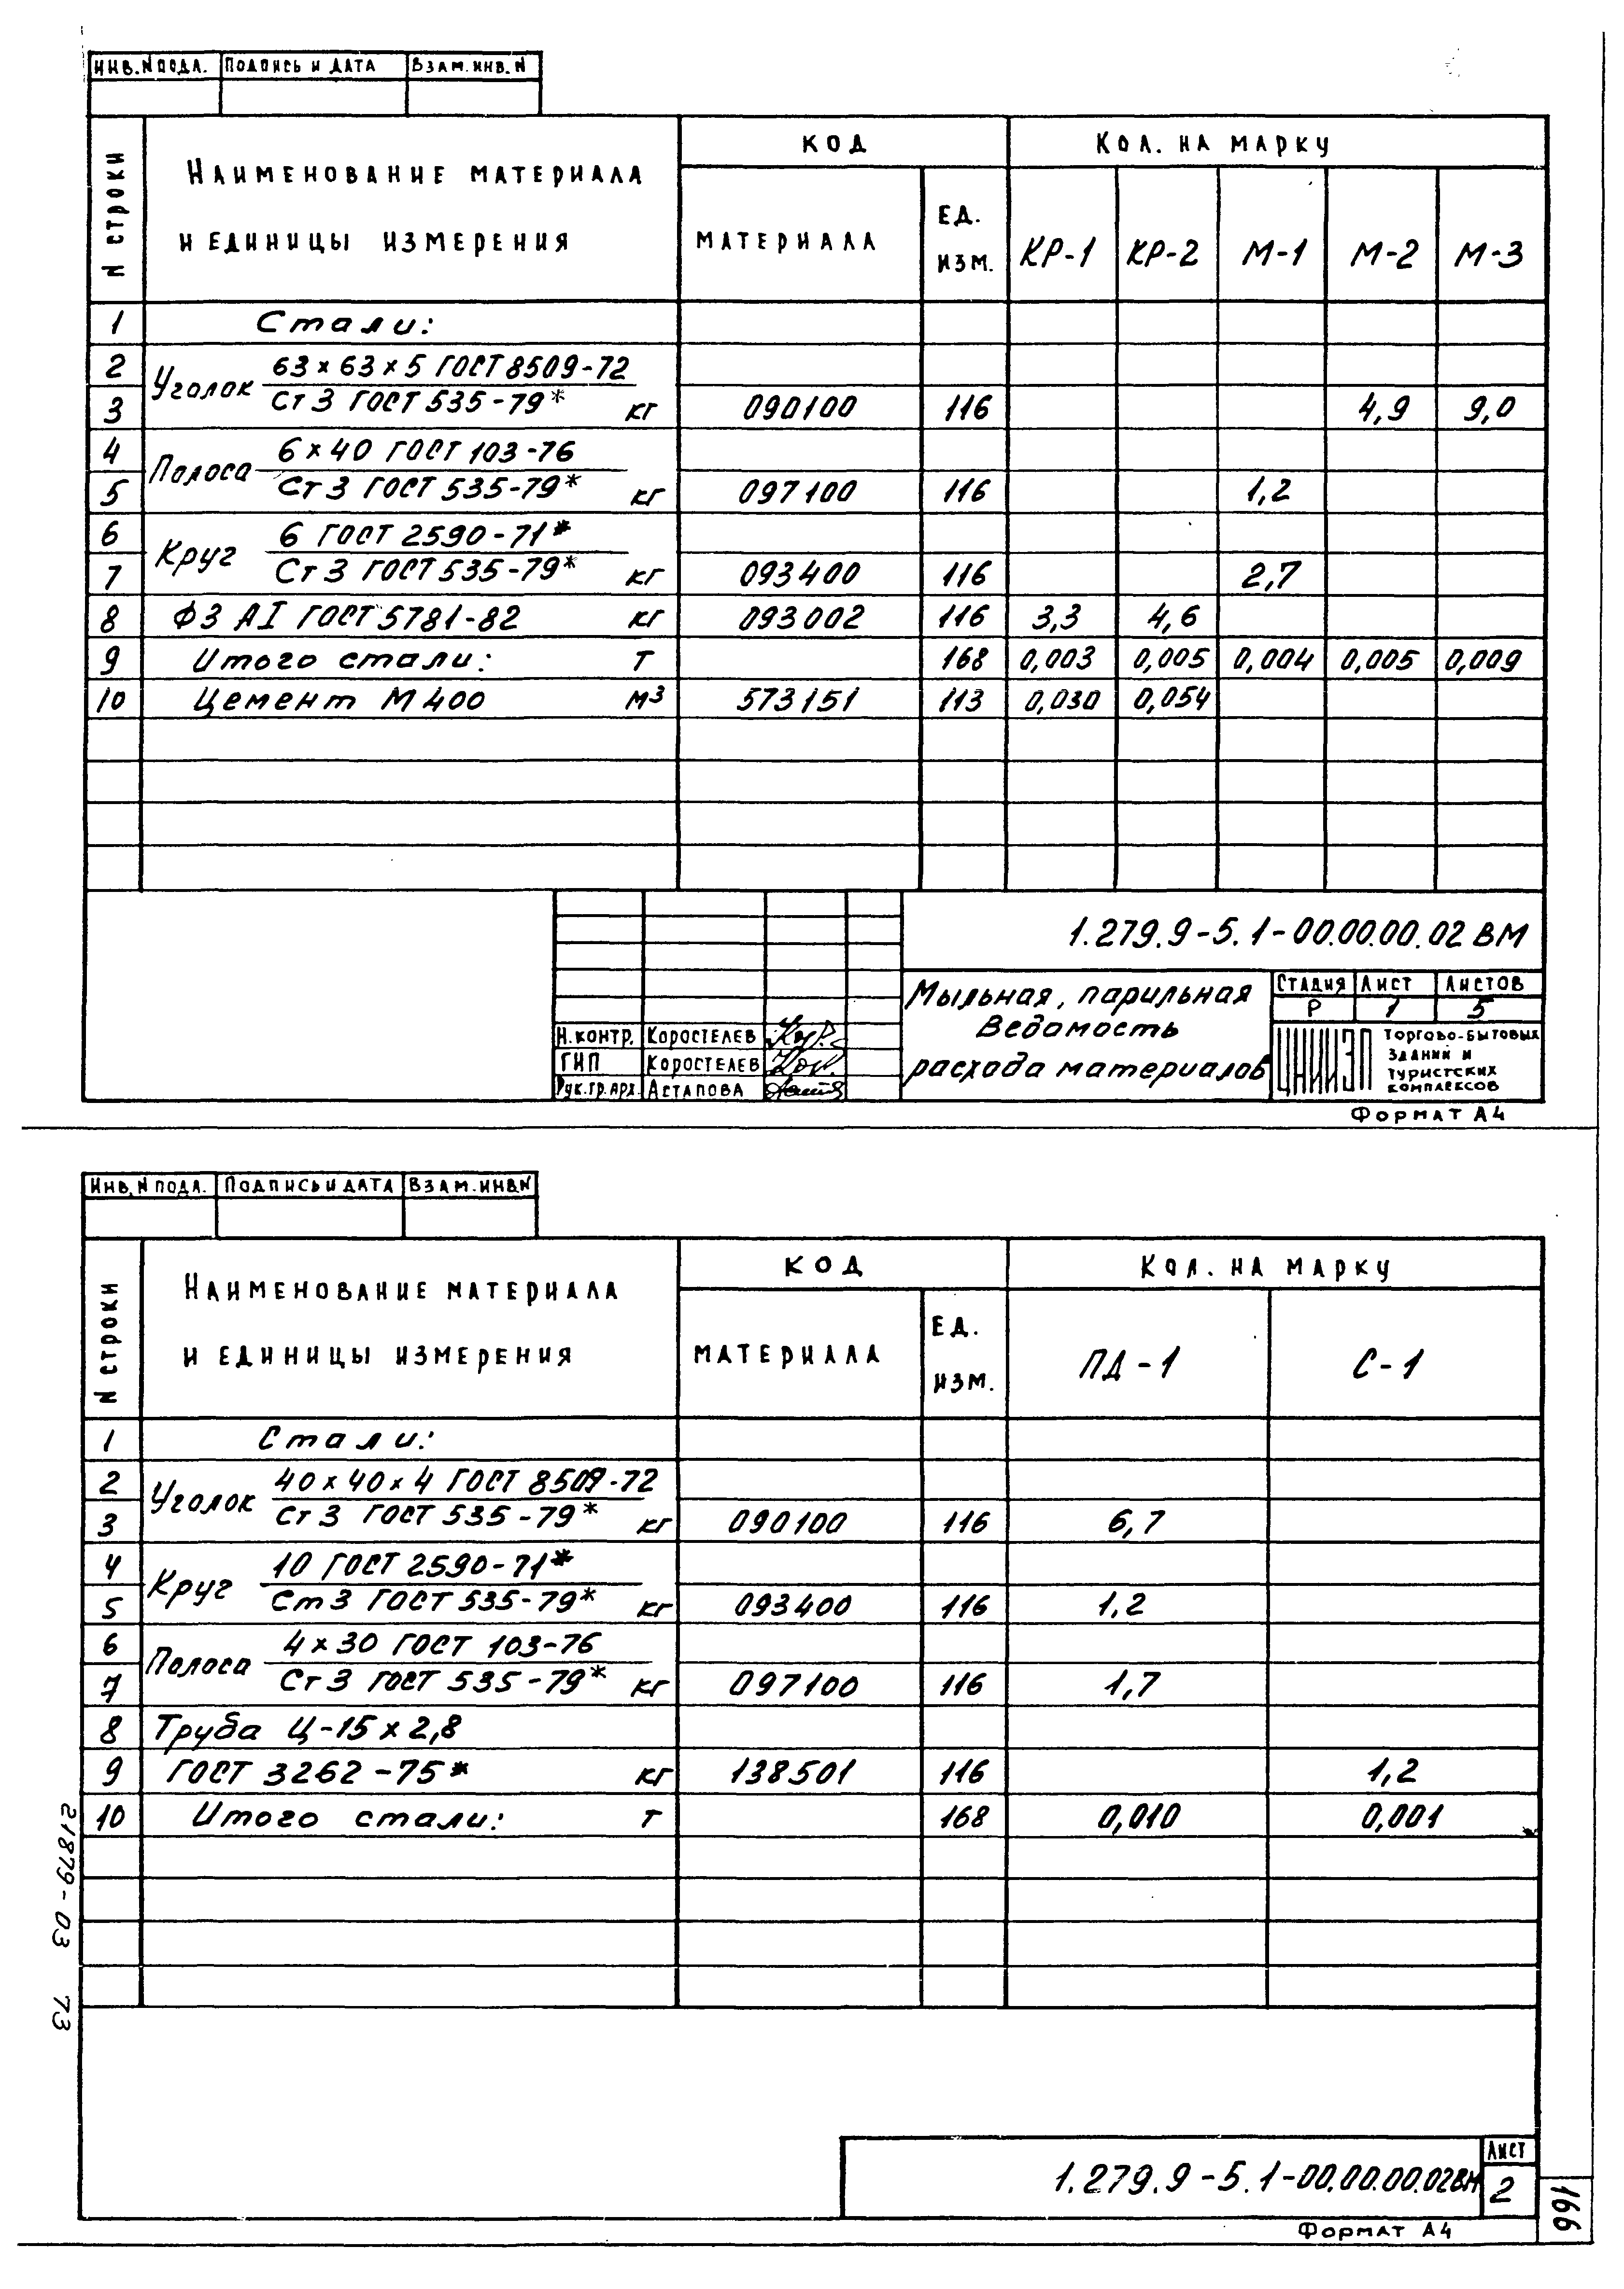 Инв.N подл. Подпись и дата Взам.инв.N
N строки
Наименование материала и единицы измерения
Код
Кол. на марку
материала
Ед. изм.
КР-1 КР-2 М-1 М-2 М-3
1 Стали:
2 Уголок 63×63×5 ГОСТ 8509-72
3 Ст 3 ГОСТ 535-79* кг 090100 116 4,9 9,0
4 Полоса 6×40 ГОСТ 103-76
5 Ст 3 ГОСТ 535-79* кг 097100 116 1,2
6 Круг 6 ГОСТ 2590-71*
7 Ст 3 ГОСТ 535-79* кг 093400 116 2,7
8 Ф3 АI ГОСТ 5781-82 кг 093002 116 3,3 4,6
9 Итого стали: т 168 0,003 0,005 0,004 0,005 0,009
10 Цемент М400 м3 573151 113 0,030 0,054
1.279.9-5.1-00.00.00.02 ВМ
Мыльная, парильная
Ведомость
расхода материалов
Стадия Лист Листов
Р 1 5
Н.контр. Коростелев
ГИП Коростелев
Рук.гр.арх. Астапова
ЦНИИЭП
торгово-бытовых
зданий и
туристских
комплексов
Формат А4
Инв.N подл. Подпись и дата Взам.инв.N
N строки
Наименование материала и единицы измерения
Код
Кол. на марку
материала
Ед. изм.
ПД-1 С-1
1 Стали:
2 Уголок 40×40×4 ГОСТ 8509-72
3 Ст 3 ГОСТ 535-79* кг 090100 116 6,7
4 Круг 10 ГОСТ 2590-71*
5 Ст 3 ГОСТ 535-79* кг 093400 116 1,2
6 Полоса 4×30 ГОСТ 103-76
7 Ст 3 ГОСТ 535-79* кг 097100 116 1,7
8 Труба Ц-15×2,8
9 ГОСТ 3262-75* кг 138501 116 1,2
10 Итого стали: т 168 0,010 0,001
21879-03 73
1.279.9-5.1-00.00.00.02ВМ
Лист
2
Формат А4
166